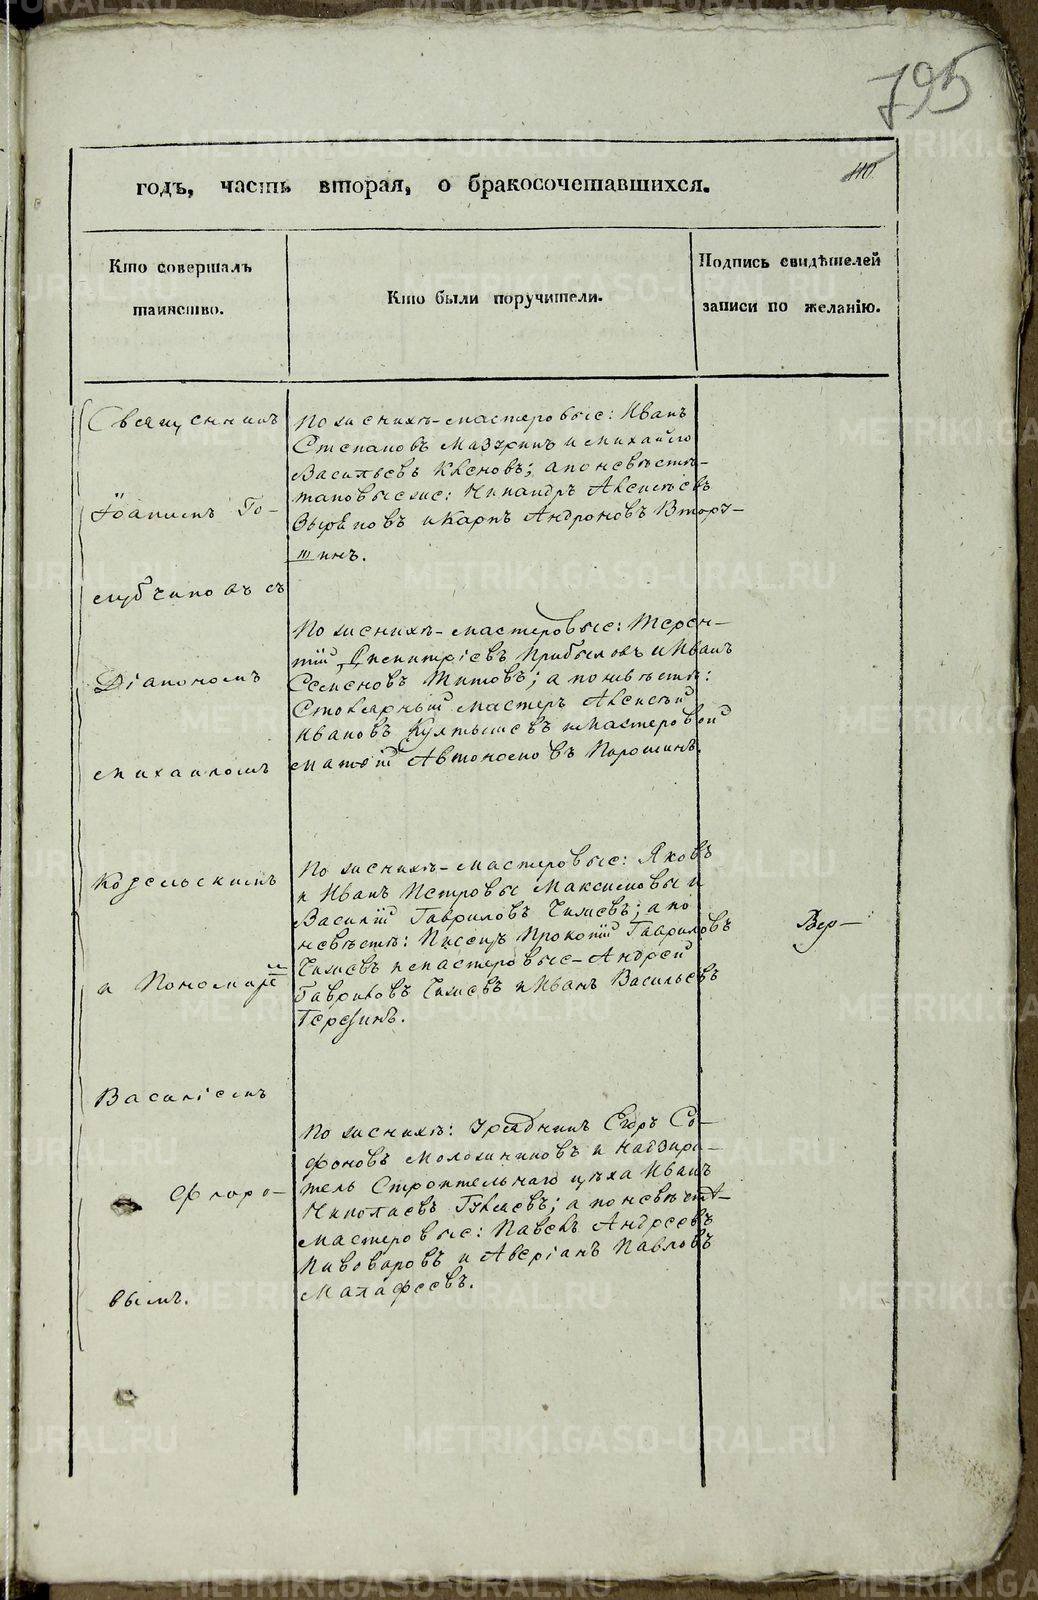 795
годъ, часть вторая, о бракосочетавшихся.
Кто совершалъ
таинство.
Кто были поручители.
Подпись свидѣтелей
записи по желанію.
Священникъ
Іоаннъ Го-
лубчиковъ съ
Діакономъ
Михаиломъ
Козельскимъ
и Пономаремъ
Василіемъ
Флоро-
вымъ.
По женихѣ-мастеровые: Иванъ
Степановъ Мазуринъ и Михайло
Васильевъ; а по невѣстѣ-
таковые же: Никандръ Алексѣевъ
Зыряновъ и Карпъ Андроновъ Втору-
шинъ.
По женихѣ-мастеровые: Терен-
тій Димитріевъ Прибылевъ и Иванъ
Семеновъ Титовъ; а по невѣстѣ:
Столярный мастеръ Алексѣй
Ивановъ Култышевъ и мастеровой
Матѳій Автономовъ Порошинъ.
По женихѣ-мастеровые: Яковъ
и Иванъ Петровы Максимовы и
Василій Гавриловъ Чижевъ; а по
невѣстѣ: Писецъ Прокопій Гавриловъ
Чижевъ и мастеровые-Андрей
Гавриловъ Чижевъ и Иванъ Васильевъ
Терезинъ.
По женихѣ: Урядникъ Егоръ Со-
фоновъ Моложниковъ и Надзира-
тель Строительнаго цѣха Иванъ
Николаевъ Гилевъ; а по невѣстѣ-
мастеровые: Павелъ Андреевъ
Пивоваровъ и Аверіанъ Павловъ
Малафеевъ.
Вер-
METRIKI.GASO-URAL.RU